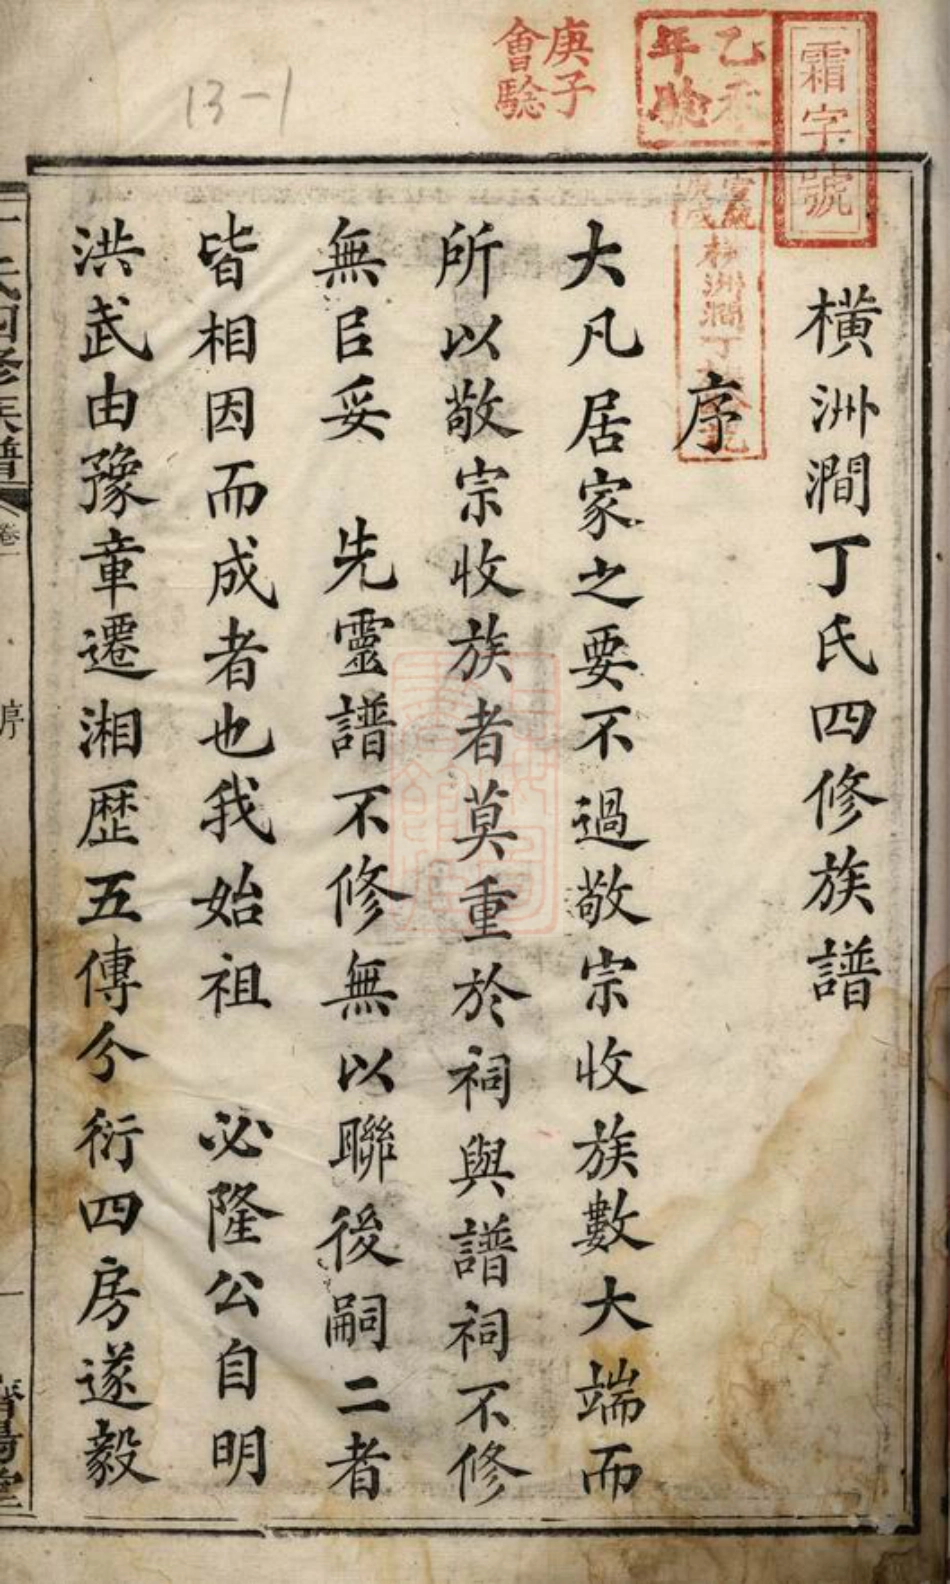 霜字號
乙未
年驗
庚子
會驗
13-1
橫洲澗丁氏四修族譜
序
大凡居家之要不過敬宗收族數大端而
所以敬宗收族者莫重於祠與譜祠不修
無㠯妥　先靈譜不修無以聯後嗣二者
皆相因而成者也我始祖　必隆公自明
洪武由豫章遷湘歷五傳今衍四房遂毅
丁氏四修族譜
卷一
序
一
濟陽堂